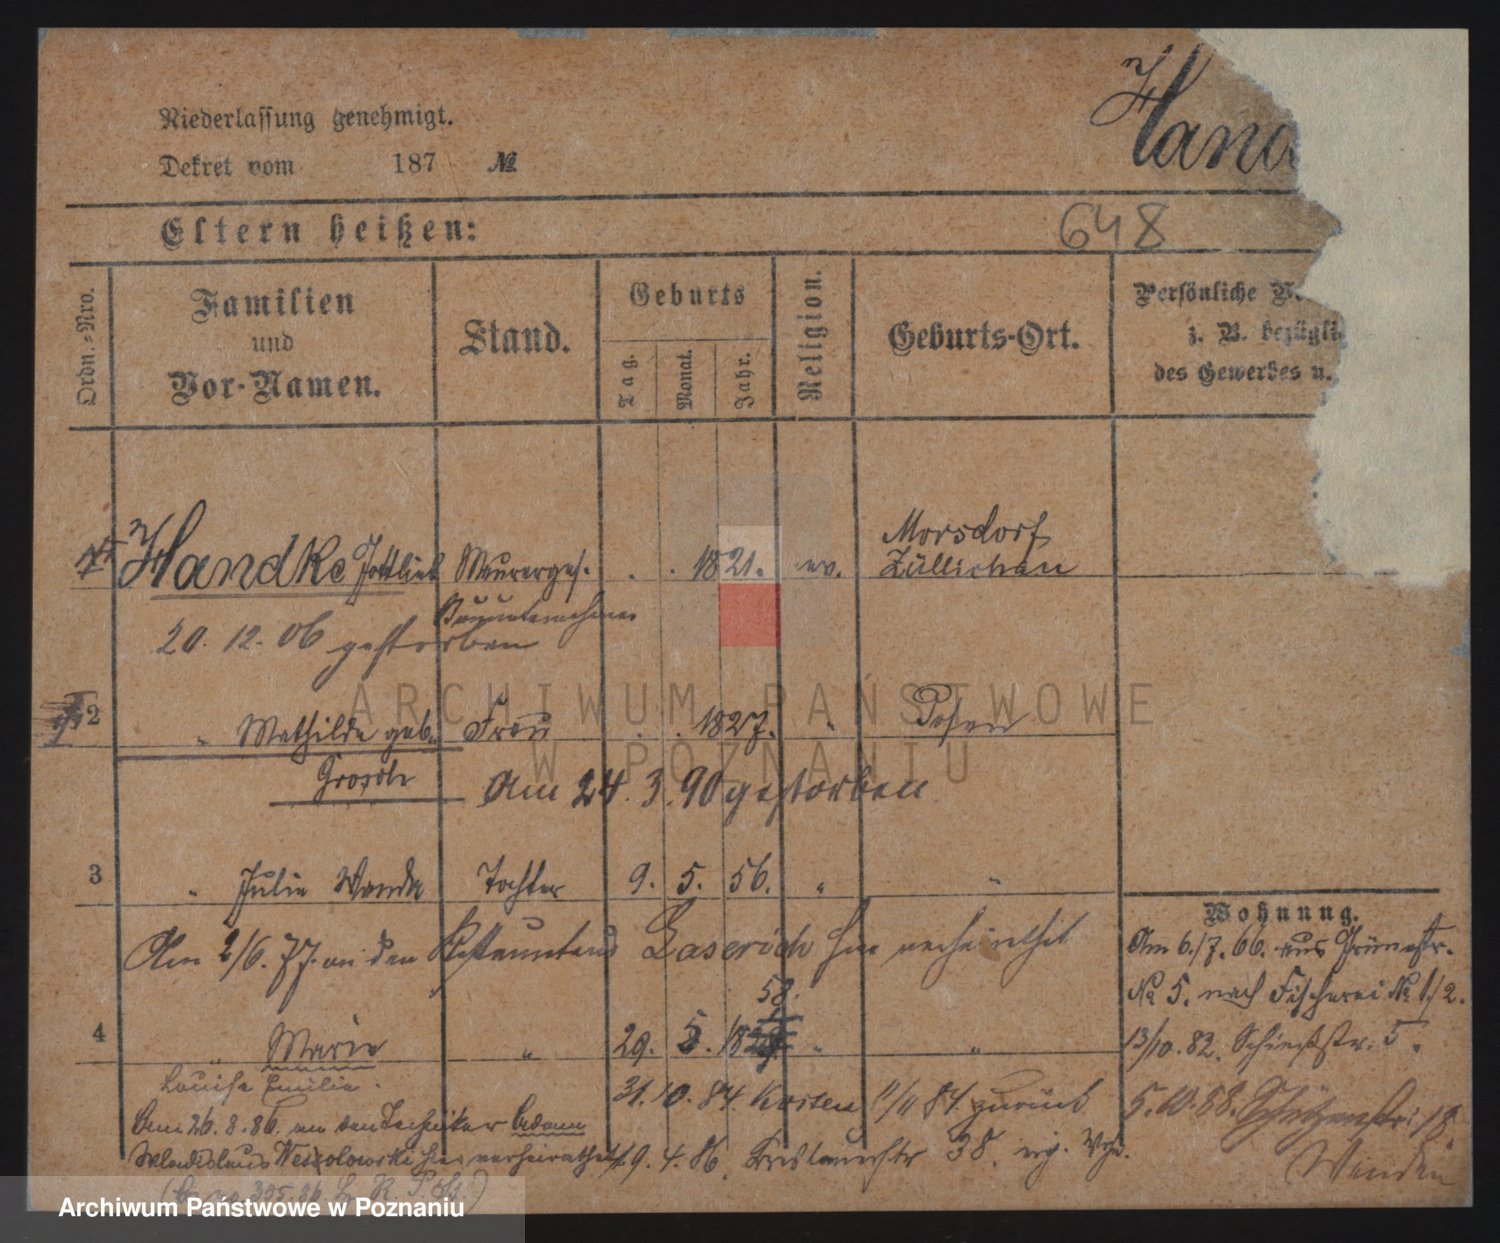 Niederlassung genehmigt.
Dekret vom 187 №
Hand
648
Eltern heißen:
Ordn.-Nro.
Familien
und
Vor-Namen.
Stand.
Geburts
Tag.
Monat.
Jahr.
Religion.
Geburts-Ort.
Persönliche
z. B. bezügli
des Gewerbes u.
Handke Gottlieb Maurerges. 1821. ev. Morsdorf
Züllichau
Bauunternehmer
20. 12. 06 gestorben
2 " Mathilde geb. Frau 1827. " Posen
Am 24. 3. 90 gestorben
3 " Julie Wanda Tochter 9. 5. 56. " "
Wohnung.
Am 2/6. 77. an den hier verheirathet
Am 6./7. 66. aus
No 5. nach Fischerei No 1/2.
58.
4 " Marie " 29. 5. 18 " "
13/10. 82. 5.
Louise Emilie.
31. 10. 84. Kosten 11/11 84. zurück
5. 10. 88. Schützenstr. 18.
Am 26. 8. 86. an den Techniker Adam
Wladislaus hier verheirathet
19. 4. 86. 38.
ARCHIWUM PAŃSTWOWE
W POZNANIU
Archiwum Państwowe w Poznaniu